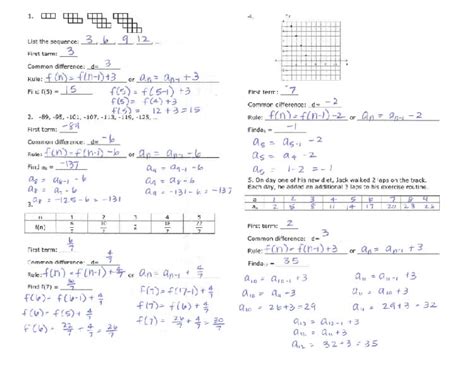 1.
List the sequence: 3, 6, 9, 12
First term: 3
Common difference: d= 3
Rule: f(n) = f(n-1)+3 or an = an-1 + 3
Find f(5) = 15
f(5) = f(5-1)+3
f(5) = f(4)+3
f(5) = 12+3=15
2. -89, -95, -101, -107, -113, -119, -125, ...
First term: -89
Common difference: d= -6
Rule: f(n) = f(n-1)-6 or an = an-1 - 6
Find a9 = -137
a8 = a8-1 - 6
a8 = a7 - 6
a8 = -125-6 = -131
a9 = a9-1 - 6
a9 = a8 - 6
a9 = -131-6 = -137
3.
n 1 2 3 4 5
f(n)
First term:
Common difference: d= 4/7
Rule: f(n) = f(n-1)+4/7 or an = an-1 + 4/7
Find f(7) =
f(6) = f(6-1)+4/7
f(6) = f(5)+4/7
f(7) = f(7-1)+4/7
f(7) = f(6)+4/7
4.
First term: 7
Common difference: d= -2
Rule: f(n) = f(n-1)-2 or an = an-1 - 2
Find a5 = -1
a5 = a5-1 - 2
a5 = a4 - 2
a5 = 1-2 = -1
5. On day one of his new diet, Jack walked 2 laps on the track.
Each day, he added an additional 3 laps to his exercise routine.
2 5 8 11 14 17 20 23 26
First term: 2
Common difference: d= 3
Rule: f(n) = f(n-1)+3 or an = an-1 + 3
Find a12 = 35
a10 = a10-1 + 3
a10 = a9 + 3
a10 = 26+3=29
a11 = a11-1 + 3
a11 = a10 + 3
a11 = 29+3 = 32
a12 = a12-1 + 3
a12 = a11 + 3
a12 = 32+3=35